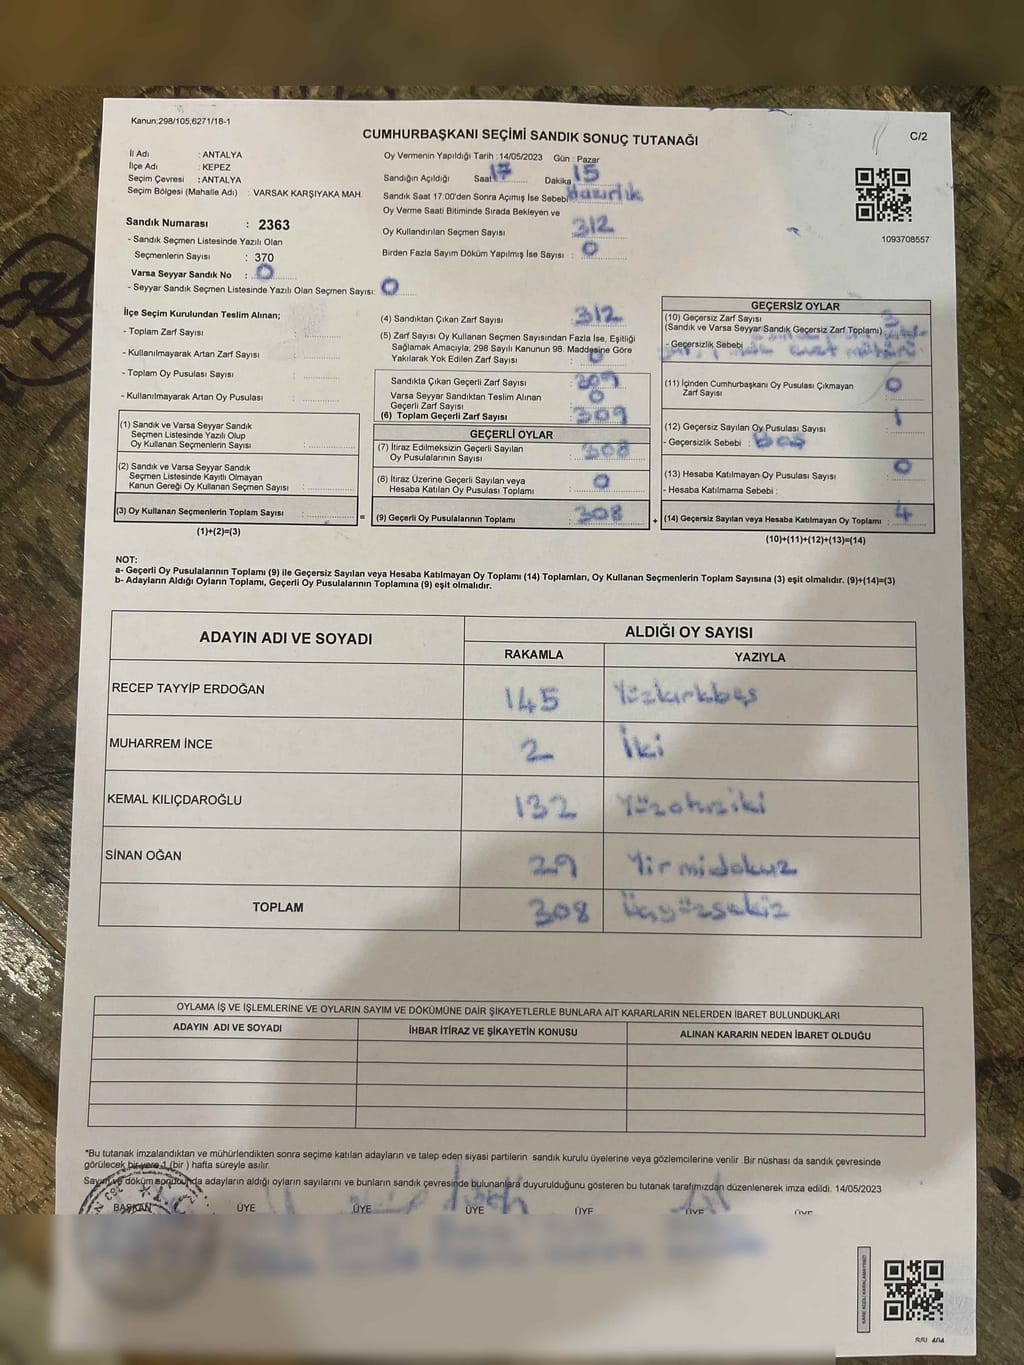 Kanun;298/105,6271/18-1
CUMHURBAŞKANI SEÇİMİ SANDIK SONUÇ TUTANAĞI
C/2
İl Adı : ANTALYA
İlçe Adı : KEPEZ
Seçim Çevresi : ANTALYA
Seçim Bölgesi (Mahalle Adı) : VARSAK KARŞIYAKA MAH.
Oy Vermenin Yapıldığı Tarih :14/05/2023 Gün : Pazar
Sandığın Açıldığı Saat 17 Dakika 15
Sandık Saat 17:00'den Sonra Açımış İse Sebebi Hazırlık
Oy Verme Saati Bitiminde Sırada Bekleyen ve
Oy Kullandırılan Seçmen Sayısı 312
Birden Fazla Sayım Döküm Yapılmış İse Sayısı : 0
1093708557
Sandık Numarası : 2363
- Sandık Seçmen Listesinde Yazılı Olan
Seçmenlerin Sayısı : 370
Varsa Seyyar Sandık No : 0
- Seyyar Sandık Seçmen Listesinde Yazılı Olan Seçmen Sayısı: 0
İlçe Seçim Kurulundan Teslim Alınan;
- Toplam Zarf Sayısı :
- Kullanılmayarak Artan Zarf Sayısı :
- Toplam Oy Pusulası Sayısı :
- Kullanılmayarak Artan Oy Pusulası :
(1) Sandık ve Varsa Seyyar Sandık
Seçmen Listesinde Yazılı Olup
Oy Kullanan Seçmenlerin Sayısı :
(2) Sandık ve Varsa Seyyar Sandık
Seçmen Listesinde Kayıtlı Olmayan
Kanun Gereği Oy Kullanan Seçmen Sayısı :
(3) Oy Kullanan Seçmenlerin Toplam Sayısı :
(1)+(2)=(3)
(4) Sandıktan Çıkan Zarf Sayısı : 312
(5) Zarf Sayısı Oy Kullanan Seçmen Sayısından Fazla İse, Eşitliği
Sağlamak Amacıyla, 298 Sayılı Kanunun 98. Maddesine Göre
Yakılarak Yok Edilen Zarf Sayısı : 0
Sandıkta Çıkan Geçerli Zarf Sayısı : 309
Varsa Seyyar Sandıktan Teslim Alınan
Geçerli Zarf Sayısı : 0
(6) Toplam Geçerli Zarf Sayısı : 309
GEÇERLİ OYLAR
(7) İtiraz Edilmeksizin Geçerli Sayılan
Oy Pusulalarının Sayısı : 308
(8) İtiraz Üzerine Geçerli Sayılan veya
Hesaba Katılan Oy Pusulası Toplamı : 0
= (9) Geçerli Oy Pusulalarının Toplamı : 308
GEÇERSİZ OYLAR
(10) Geçersiz Zarf Sayısı 3
(Sandık ve Varsa Seyyar Sandık Geçersiz Zarf Toplamı)
- Geçersizlik Sebebi
(11) İçinden Cumhurbaşkanı Oy Pusulası Çıkmayan
Zarf Sayısı : 0
(12) Geçersiz Sayılan Oy Pusulası Sayısı : 1
- Geçersizlik Sebebi : Boş
(13) Hesaba Katılmayan Oy Pusulası Sayısı : 0
- Hesaba Katılmama Sebebi :
+ (14) Geçersiz Sayılan veya Hesaba Katılmayan Oy Toplamı : 4
(10)+(11)+(12)+(13)=(14)
NOT:
a- Geçerli Oy Pusulalarının Toplamı (9) ile Geçersiz Sayılan veya Hesaba Katılmayan Oy Toplamı (14) Toplamları, Oy Kullanan Seçmenlerin Toplam Sayısına (3) eşit olmalıdır. (9)+(14)=(3)
b- Adayların Aldığı Oyların Toplamı, Geçerli Oy Pusulalarının Toplamına (9) eşit olmalıdır.
ADAYIN ADI VE SOYADI
ALDIĞI OY SAYISI
RAKAMLA YAZIYLA
RECEP TAYYİP ERDOĞAN 145 Yüzkırkbeş
MUHARREM İNCE 2 İki
KEMAL KILIÇDAROĞLU 132 Yüzotuziki
SİNAN OĞAN 29 Yirmidokuz
TOPLAM 308 Üçyüzsekiz
OYLAMA İŞ VE İŞLEMLERİNE VE OYLARIN SAYIM VE DÖKÜMÜNE DAİR ŞİKAYETLERLE BUNLARA AİT KARARLARIN NELERDEN İBARET BULUNDUKLARI
ADAYIN ADI VE SOYADI İHBAR İTİRAZ VE ŞİKAYETİN KONUSU ALINAN KARARIN NEDEN İBARET OLDUĞU
*Bu tutanak imzalandıktan ve mühürlendikten sonra seçime katılan adayların ve talep eden siyasi partilerin sandık kurulu üyelerine veya gözlemcilerine verilir .Bir nüshası da sandık çevresinde
görülecek bir yere 1 (bir ) hafta süreyle asılır.
Sayım ve döküm sonucunda adayların aldığı oyların sayılarını ve bunların sandık çevresinde bulunanlara duyurulduğunu gösteren bu tutanak tarafımızdan düzenlenerek imza edildi. 14/05/2023
BAŞKAN ÜYE ÜYE ÜYE ÜYE ÜYE ÜYE